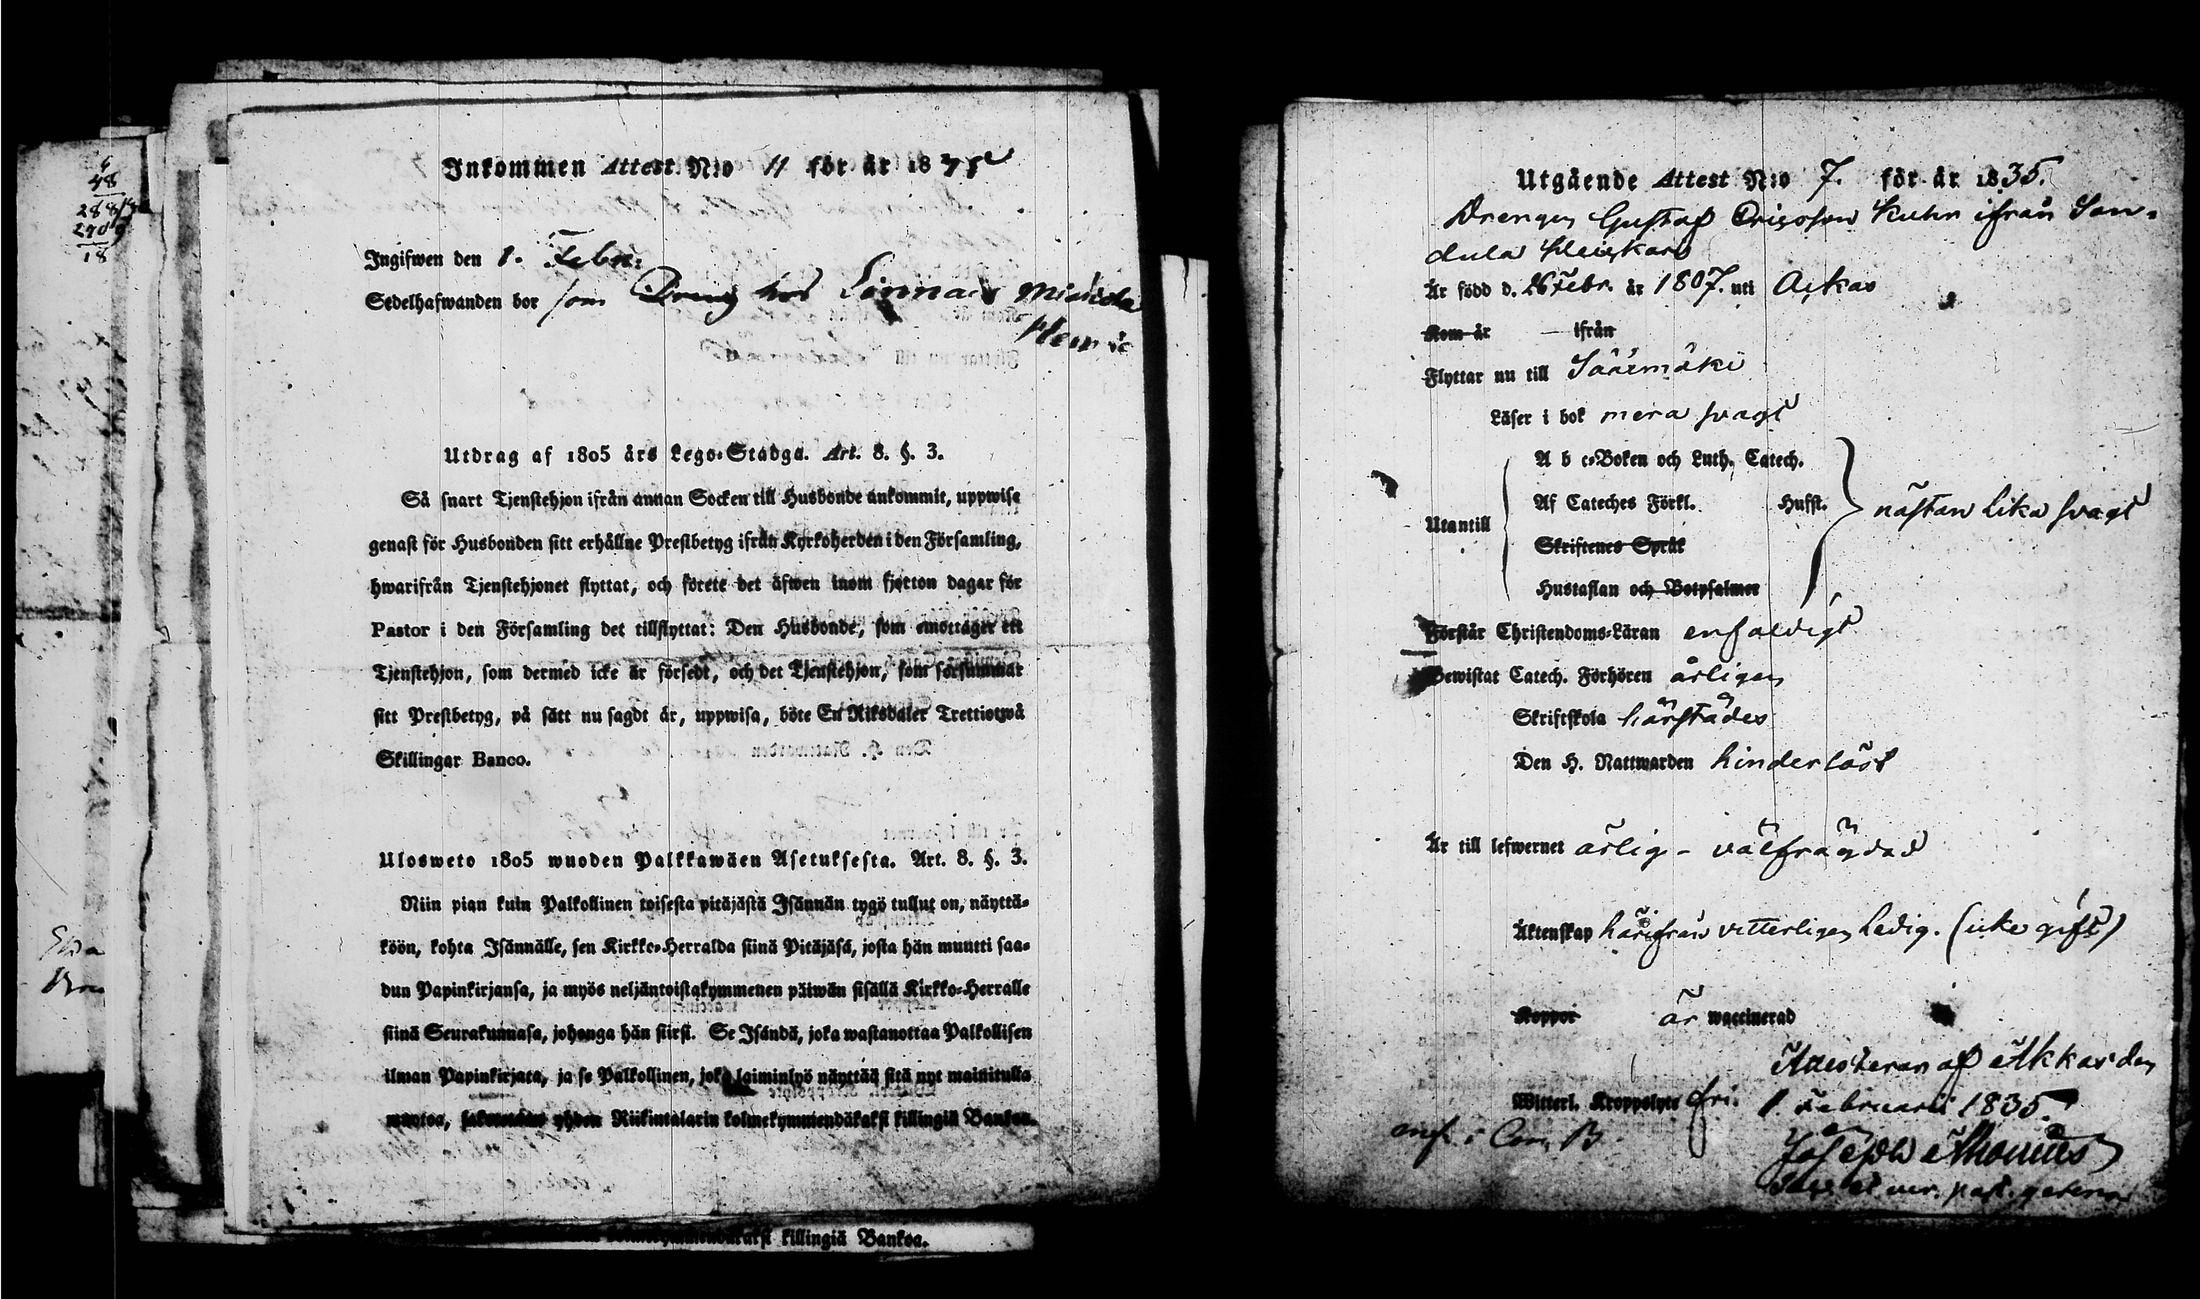 6
48
288
18
Inkommen Attest N:o 11 för år 1835
Ingifwen den 1. Febr:
Sedelhafwanden bor som Dreng hos
Utdrag af 1805 års Lego-Stadga. Art. 8. §. 3.
Så snart Tjenstehjon ifrån annan Socken till Husbonde ankommit, uppwise
genast för Husbonden sitt erhållne Prestbetyg ifrån Kyrkoherden i den Församling,
hwarifrån Tjenstehjonet flyttat, och förete det äfwen inom fjorton dagar för
Pastor i den Församling det tillflyttat: Den Husbonde, som emottager ett
Tjenstehjon, som dermed icke är försedt, och det Tjenstehjon, som försummar
sitt Prestbetyg, på sätt nu sagdt är, uppwisa, böte En Riksdaler Trettiotwå
Skillingar Banco.
Ulosweto 1805 wuoden Palkkawäen Asetuksesta. Art. 8. §. 3.
Niin pian kuin Palkollinen toisesta pitäjästä Isännän tygö tullut on, näyttä-
köön, kohta Isännälle, sen Kirkko-Herralda siinä Pitäjäsä, josta hän muutti saa-
dun Papinkirjansa, ja myös neljäntoistakymmenen päiwän sisällä Kirkko-Herralle
siinä Seurakunnasa, johonga hän siirsi. Se Isändä, joka wastanottaa Palkollisen
ilman Papinkirjata, ja se Palkollinen, joka laiminlyö näyttää sitä nyt mainitulla
muotoa, sakotetaan yhden Riikintalarin kolmekymmendäkaksi killingiä Bankoa.
killingiä Bankoa.
Utgående Attest N:o 7. för år 1835.
Drengen Gustaf Ericsson Kuhn ifrån San-
dula
Är född d. 26 Febr. år 1807. uti Ackas
Kom år — ifrån
Flyttar nu till Sääxmäki
Läser i bok mera svagt
A b c-Boken och Luth. Catech.
Af Cateches Förkl. Husst.
Utantill nästan lika svagt
Skriftenes Språk
Hustaflan och Botpsalmer
Förstår Christendoms-Läran enfaldigt
Bewistat Catech. Förhören årligen
Skriftskola härstädes
Den H. Nattwarden hinderlöst
Är till lefwernet ärlig - välfrägdad
Äktenskap härifrån vitterligen ledig. (icke gift)
Koppor är waccinerad
af Akkas den
Witterl. Kroppslyte fri. 1. Februarii 1835.
Joseph